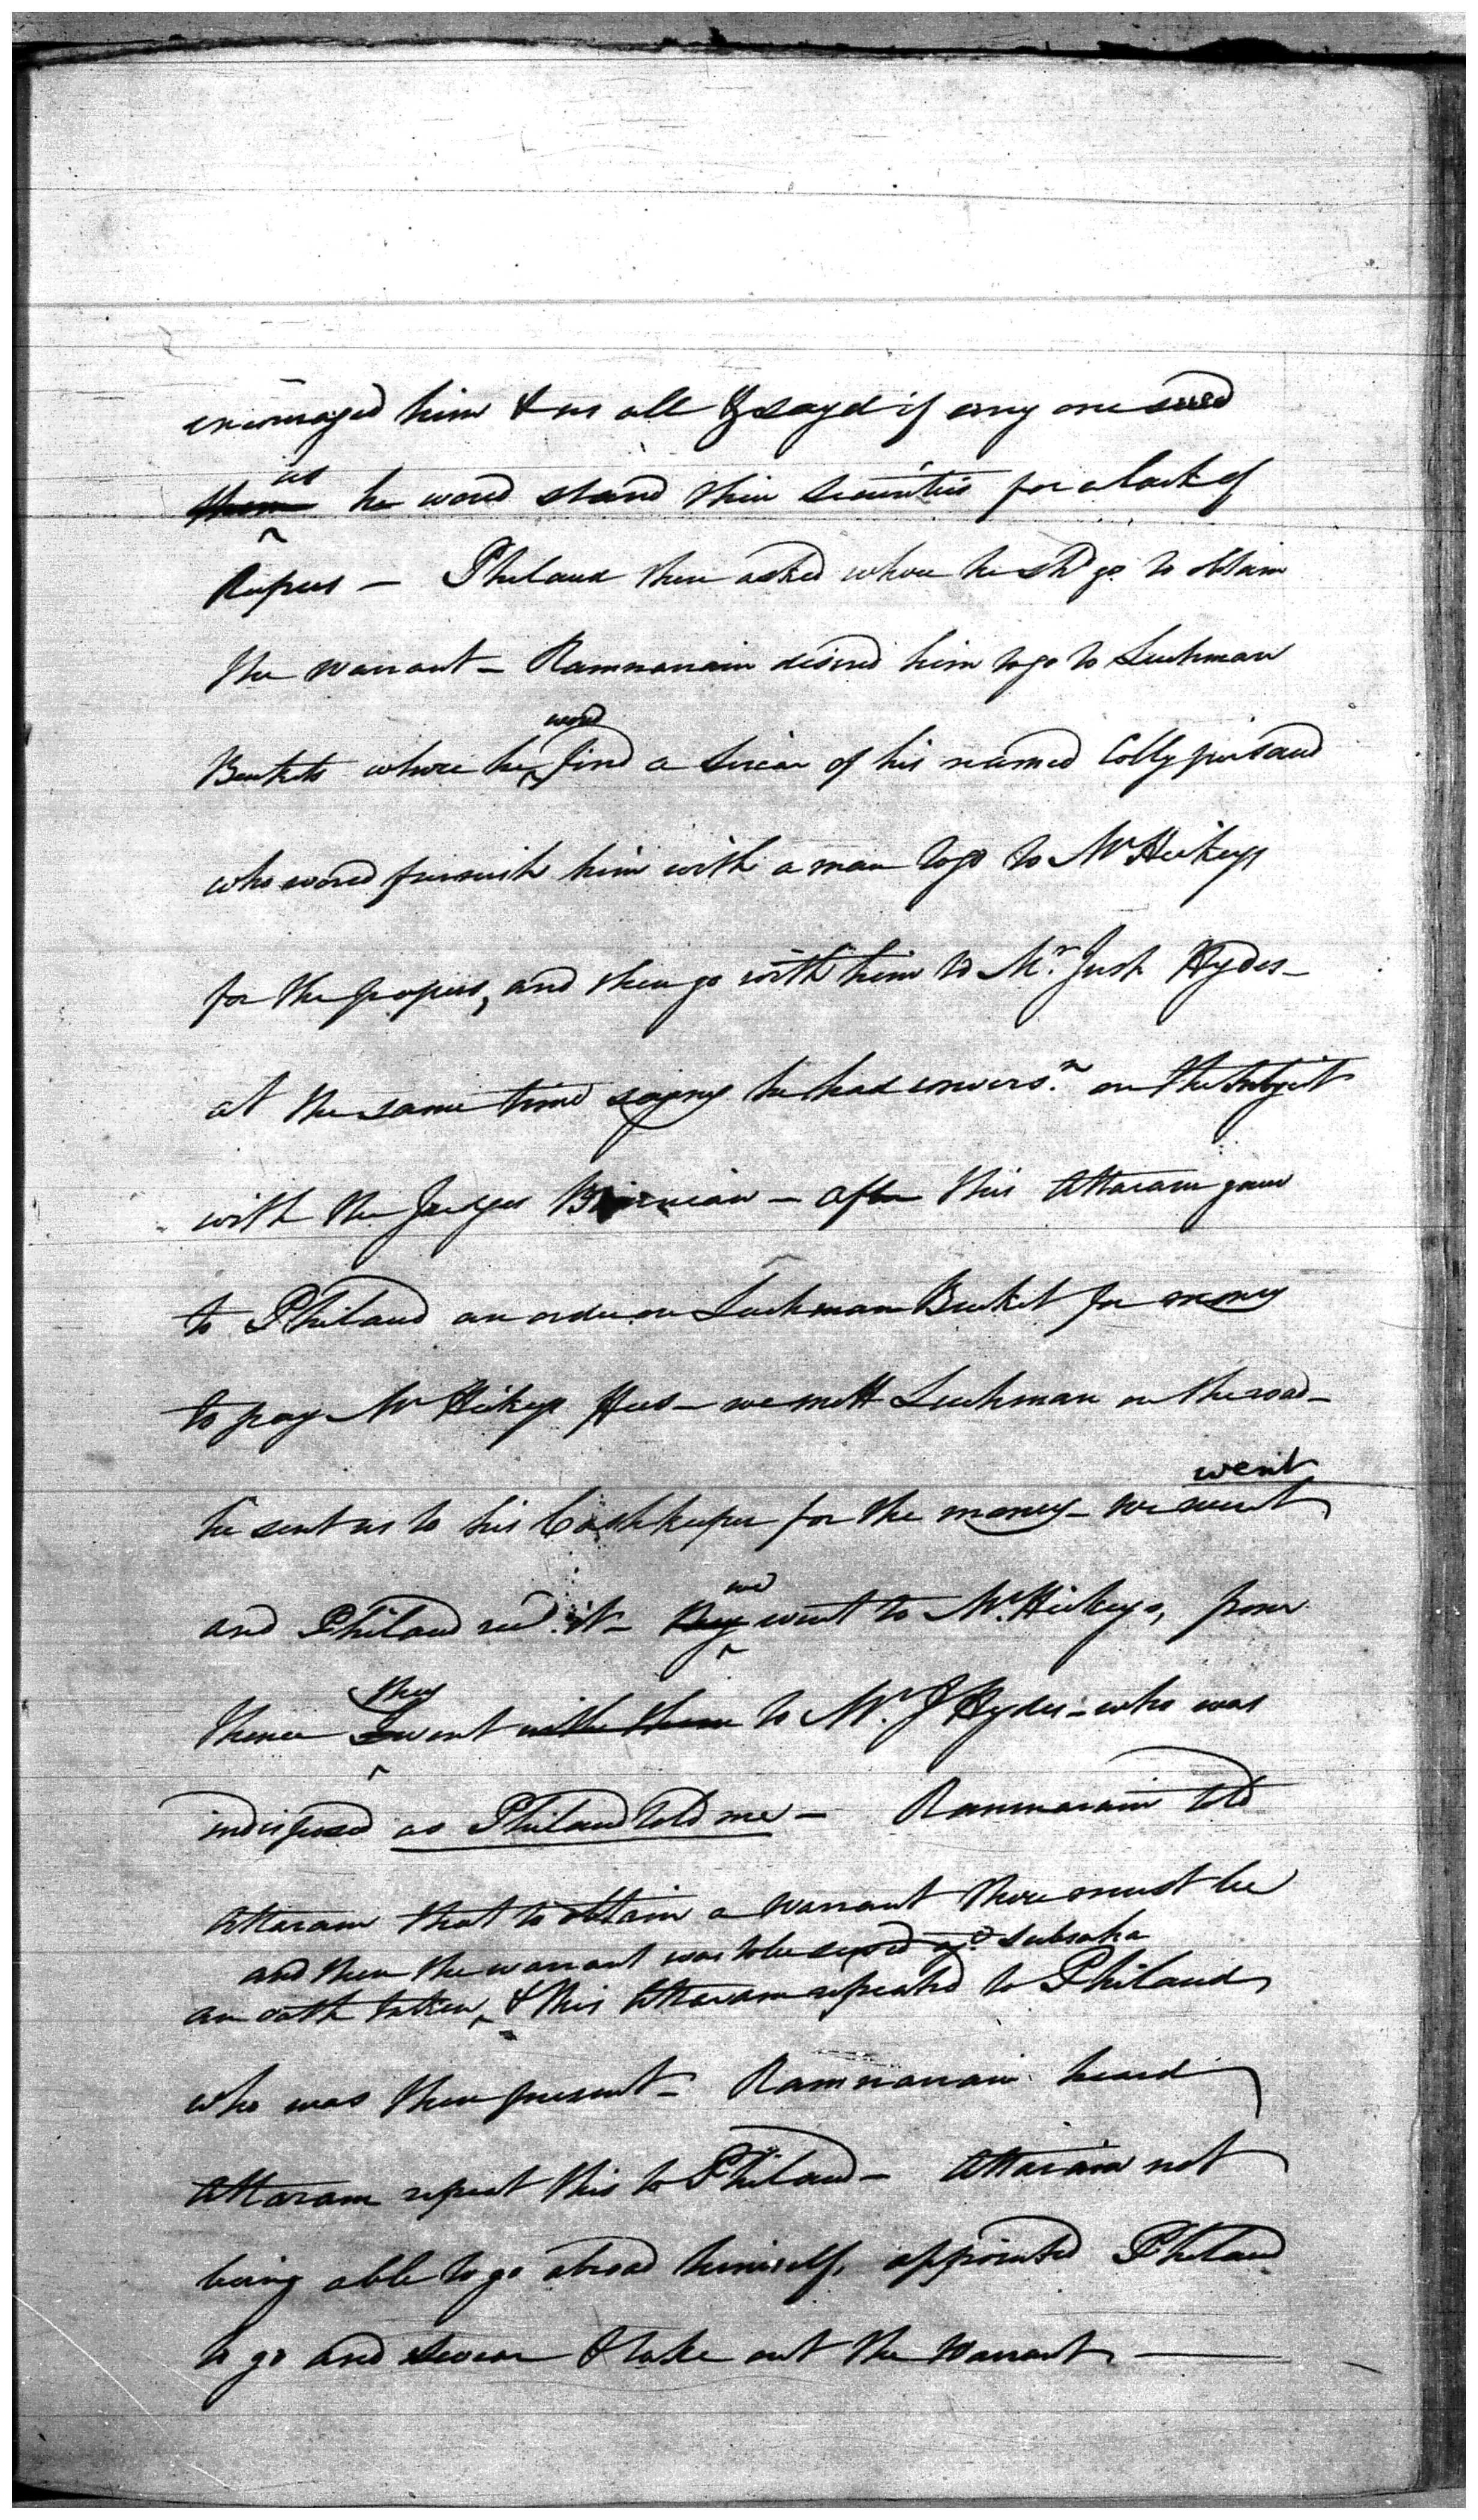 encouraged him & us all & sayd if any one sued
us
them he woud stand their Securities for a lack of
Rupees — Philaud then asked where he shd go to obtain
the Warrant — Ramnarrain desired him to go to Luchman
woud
where he find a Sircar of his named Collypursaud
who woud furnish him with a man to go to Mr Hickeys
for the papers, and then go with him to Mr. Just Hydes —
at the same time saying he had convers.n on the Subject
with the Judges Bannian — after this Attaram gave
to Philaud an order on Luchman for money
to pay Mr Hickeys fees — we mett Luchman on the road —
went
he sent us to his Cashkeeper for the money — we went
we
and Philaud recd. it — they went to Mr. Hickeys, from
they
thence I went with them to Mr. J Hydes — who was
indisposed as Philaud told me — Ramnarain told
Attaram that to obtain a Warrant there must be
and then the warrant was to be
an oath taken, & this Attaram repeated to Philaud
who was then present — Ramnarrain heard
Attaram repeat this to Philaud — Attaram not
being able to go abroad himself, appointed Philaud
to go and swear & take out the Warrant —